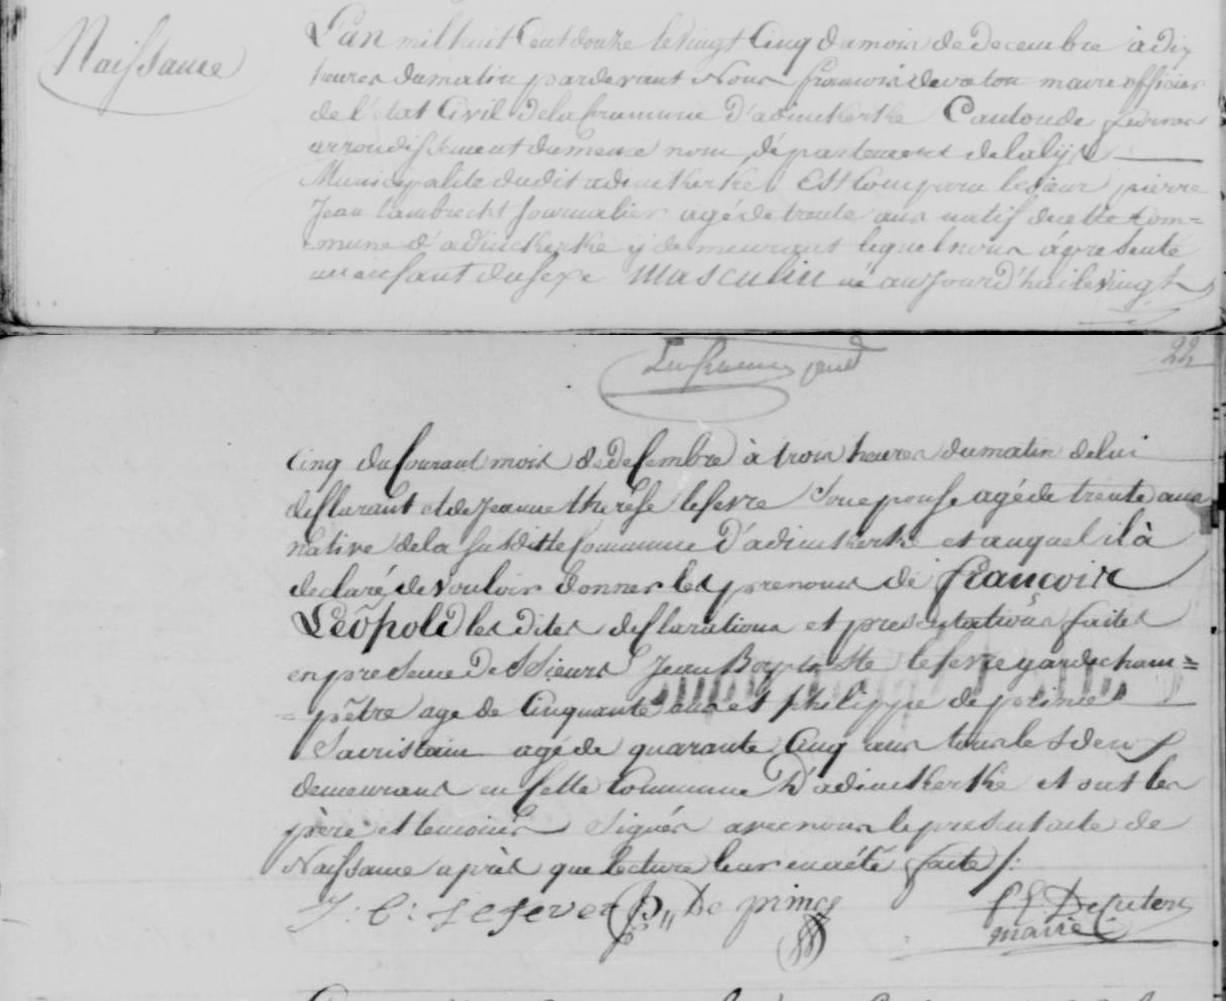 Naissance
L'an mil huit Cent douze le vingt Cinq du mois de Decembre à dix
heures du matin pardevant Nous francois maire officier
de l'état Civil de la Commune d'adinckerke Canton de furnes
arrondissement du meme nom département de la lijs
Municipalité dudit adinckerke Est Comparu le sieur pierre
Jean lambrecht Journalier agé de trente ans natif de cette Com=
=mune d'adinckerke y demeurant lequel nous à presenté
un enfant du sexe masculin né aujourd'hui le vingt
22
Cinq du Courant mois de decembre à trois heures du matin de lui
declarant et de Jeanne therese lefevre Son epouse agé de trente ans
native de la susditte Commune d'adinckerke et auquel il à
declaré de vouloir donner les prenoms de françois
Leöpold les dites declarations et presentations faites
en presence de Sieurs Jean Baptiste lefevre garde cham=
=pêtre age de Cinquante ans et philippe de princes
Sacristain agé de quarante Cinq ans tous les deux
demeurans en cette Commune d'adinckerke et ont les
père et temoins signés avec nous le present acte de
Naissance après que lecture leur en a été faite /:
J: B: Lefever P,, De princs
maire